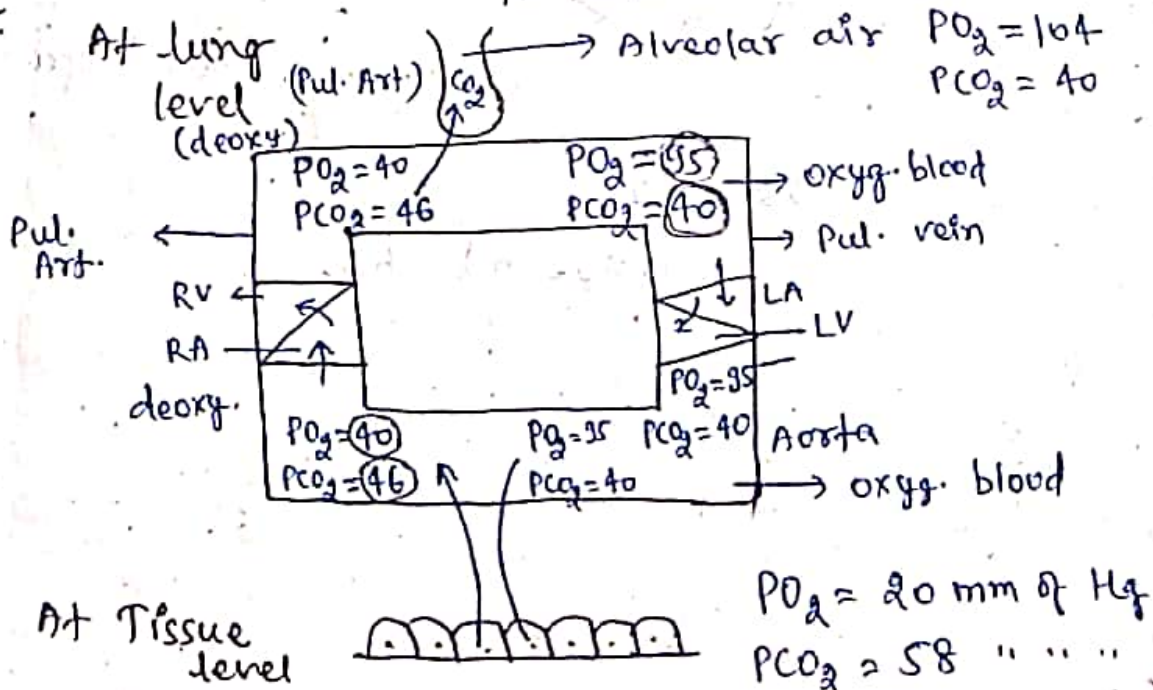 At lung level (deoxy)
(Pul. Art.)
CO2
Alveolar air
PO2 = 104
PCO2 = 40
PO2 = 40
PCO2 = 46
PO2 = 95
PCO2 = 40
oxyg. blood
Pul. vein
Pul. Art.
RV
RA
deoxy.
LA
LV
PO2 = 95
PCO2 = 40
PO2 = 40
PCO2 = 46
PO2 = 95
PCO2 = 40
Aorta
oxyg. blood
At Tissue level
PO2 = 20 mm of Hg
PCO2 = 58 " " "